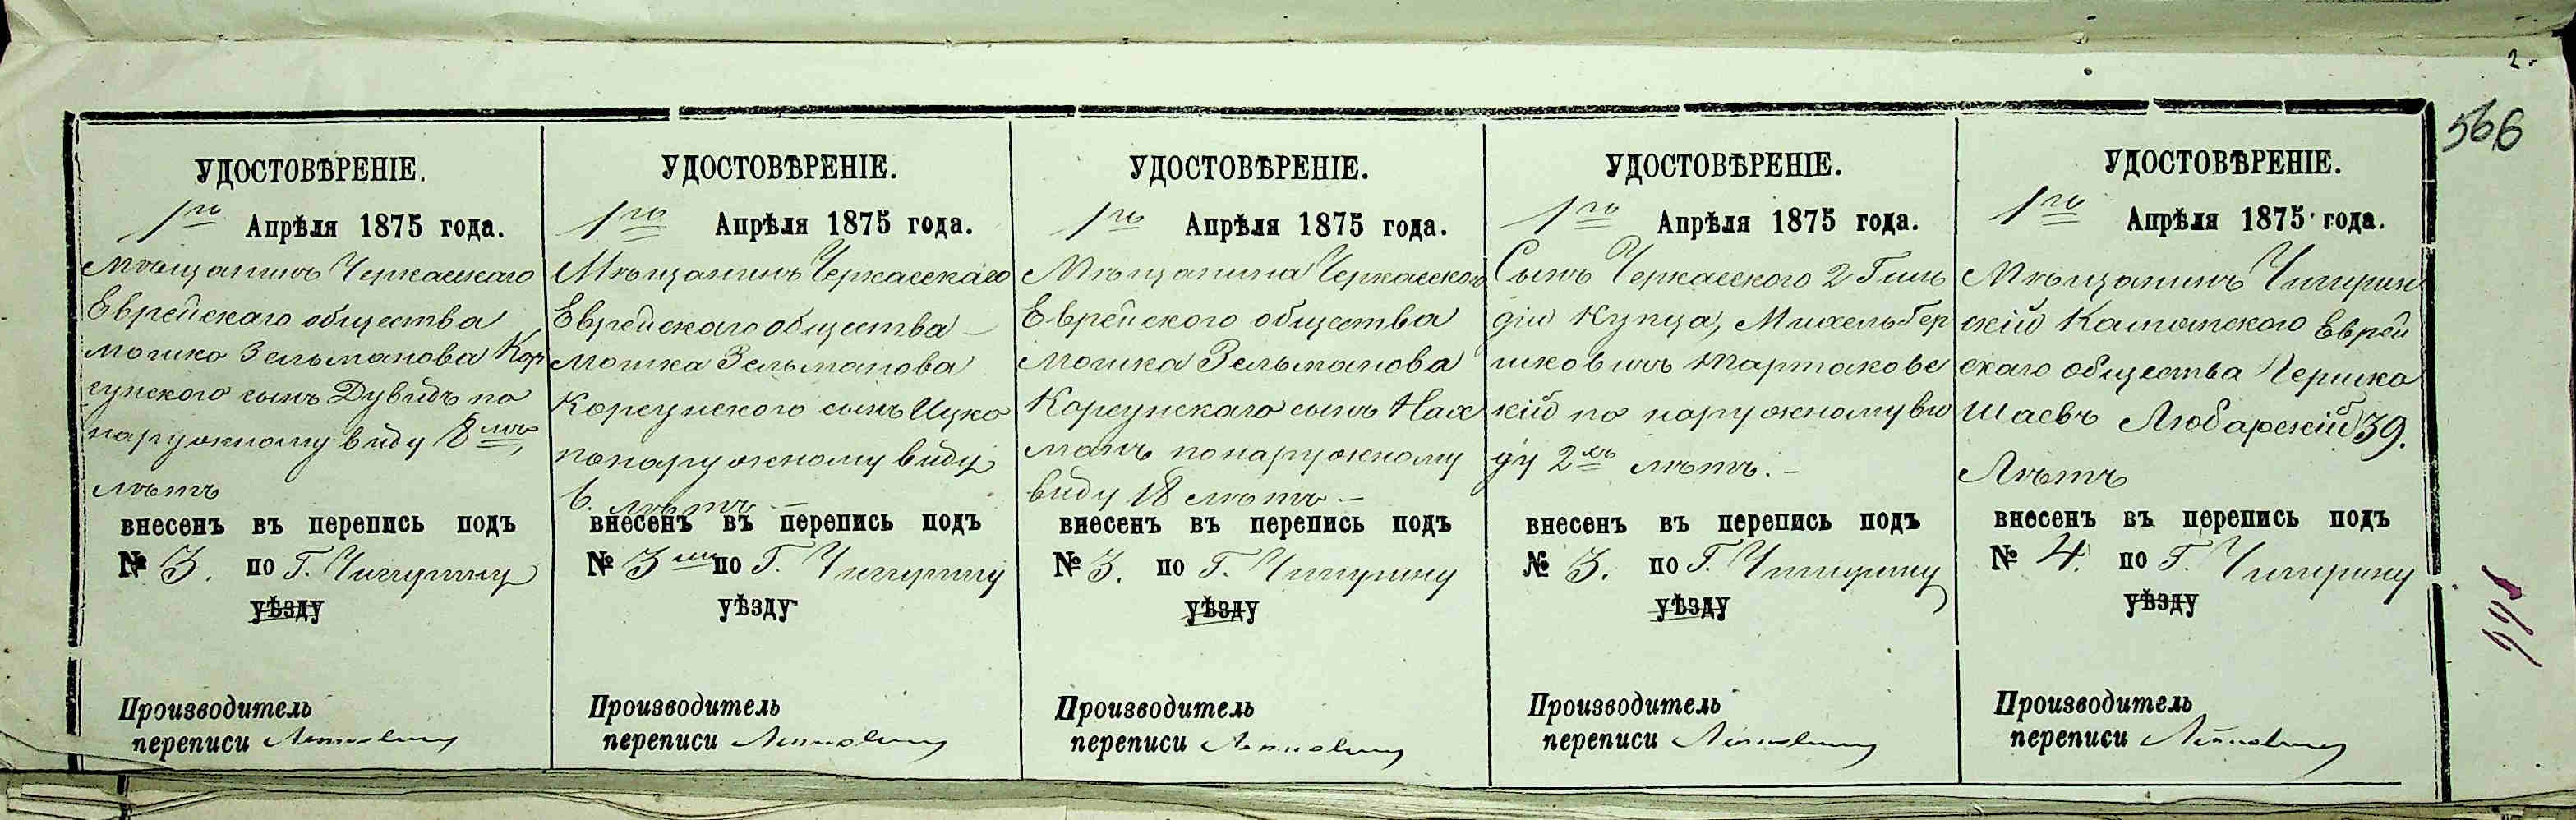 2.
566
УДОСТОВѢРЕНІЕ.
1го Апрѣля 1875 года.
Мѣщанинъ Черкаскаго
Еврейскаго общества
Мошко Зельманова Кор
сунского сынъ Дувидъ по
наружному виду 8мь
лѣтъ
внесенъ въ перепись подъ
№ 3. по Г. Чигирину
уѣзду
Производитель
переписи
УДОСТОВѢРЕНІЕ.
1го Апрѣля 1875 года.
Мѣщанинъ Черкасскаго
Еврейскаго общества
Мошка Зельманова
Корсунского сынъ Ицко
по наружному виду
6. лѣтъ. –
внесенъ въ перепись подъ
№ 3 по Г. Чигирину
уѣзду
Производитель
переписи
УДОСТОВѢРЕНІЕ.
1го Апрѣля 1875 года.
Мѣщанина Черкасского
Еврейского общества
Мошка Зельманова
Корсунскаго сынъ Нах
манъ по наружному
виду 18 лѣтъ. –
внесенъ въ перепись подъ
№ 3. по Г. Чигирину
уѣзду
Производитель
переписи
УДОСТОВѢРЕНІЕ.
1го Апрѣля 1875 года.
Сынъ Черкасского 2 Гиль
діи Купца, Михель Гер
шковичъ Тартаковс
кій по наружному ви
ду 2хъ лѣтъ. –
внесенъ въ перепись подъ
№ 3. по Г. Чигирину
уѣзду
Производитель
переписи
УДОСТОВѢРЕНІЕ.
1го Апрѣля 1875 года.
Мѣщанинъ Чигирин
скій Каменского Еврей
скаго общества Гершко
Шаевъ Любарскій 39.
Лѣтъ
внесенъ въ перепись подъ
№ 4. по Г. Чигирину
уѣзду
Производитель
переписи